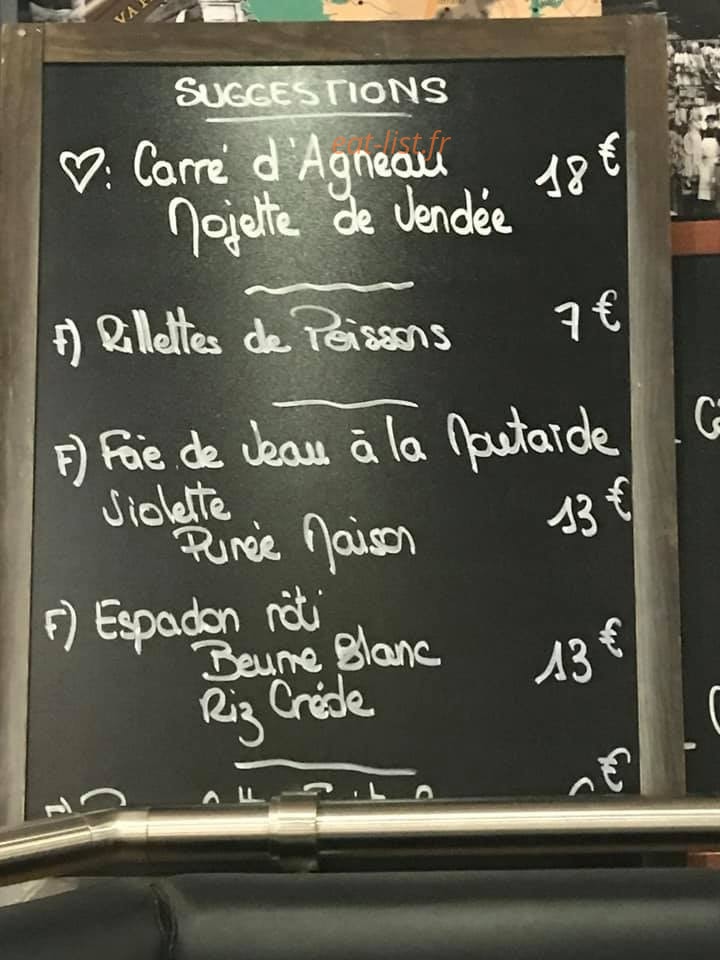 SUGGESTIONS
eat-list.fr
♡: Carré d'Agneau 18€
Mojette de Vendée
F) Rillettes de Poissons 7€
F) Foie de Veau à la Moutarde
Violette 13€
Purée Maison
F) Espadon rôti
Beurre Blanc 13€
Riz Créole
€